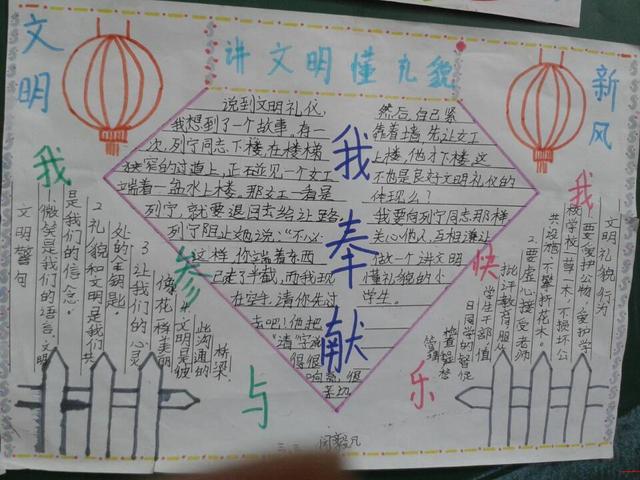 讲文明懂礼貌
文明
新风
我参与
我奉献
我快乐
说到文明礼仪，
我想到了一个故事，有一
次，列宁同志下楼，在楼梯
狭窄的过道上，正碰见一个女工
端着一盆水上楼。那女工一看是
列宁，就要退回去给让路。
列宁阻止她说：“不必
这样，你端着东西
已走了半截，而我现
在空手，请你先过
去吧！”他把
“请”字说
得很
响亮，很
亲切
然后，自己紧
靠着墙，先让女工
上楼，他才下楼。这
不也是良好文明礼仪的
体现么？
我要向列宁同志那样
关心他人，互相谦让
做一个讲文明
懂礼貌的小
学生。
文明警句
微笑是我们的语言，文明
是我们的信念。
2.礼貌和文明是我们共
处的金钥匙。
3.让我们的心灵
像花一样美丽
4.文明是彼
此沟通的
桥梁。
文明礼貌行为
1.要爱护公物，爱护学
校，学校草一木，不损坏公
共设施，不攀折花木。
2.要虚心接受老师
批评教育，服从
学生干部、值
日同学的督促
检查
三.三
闫毅凡